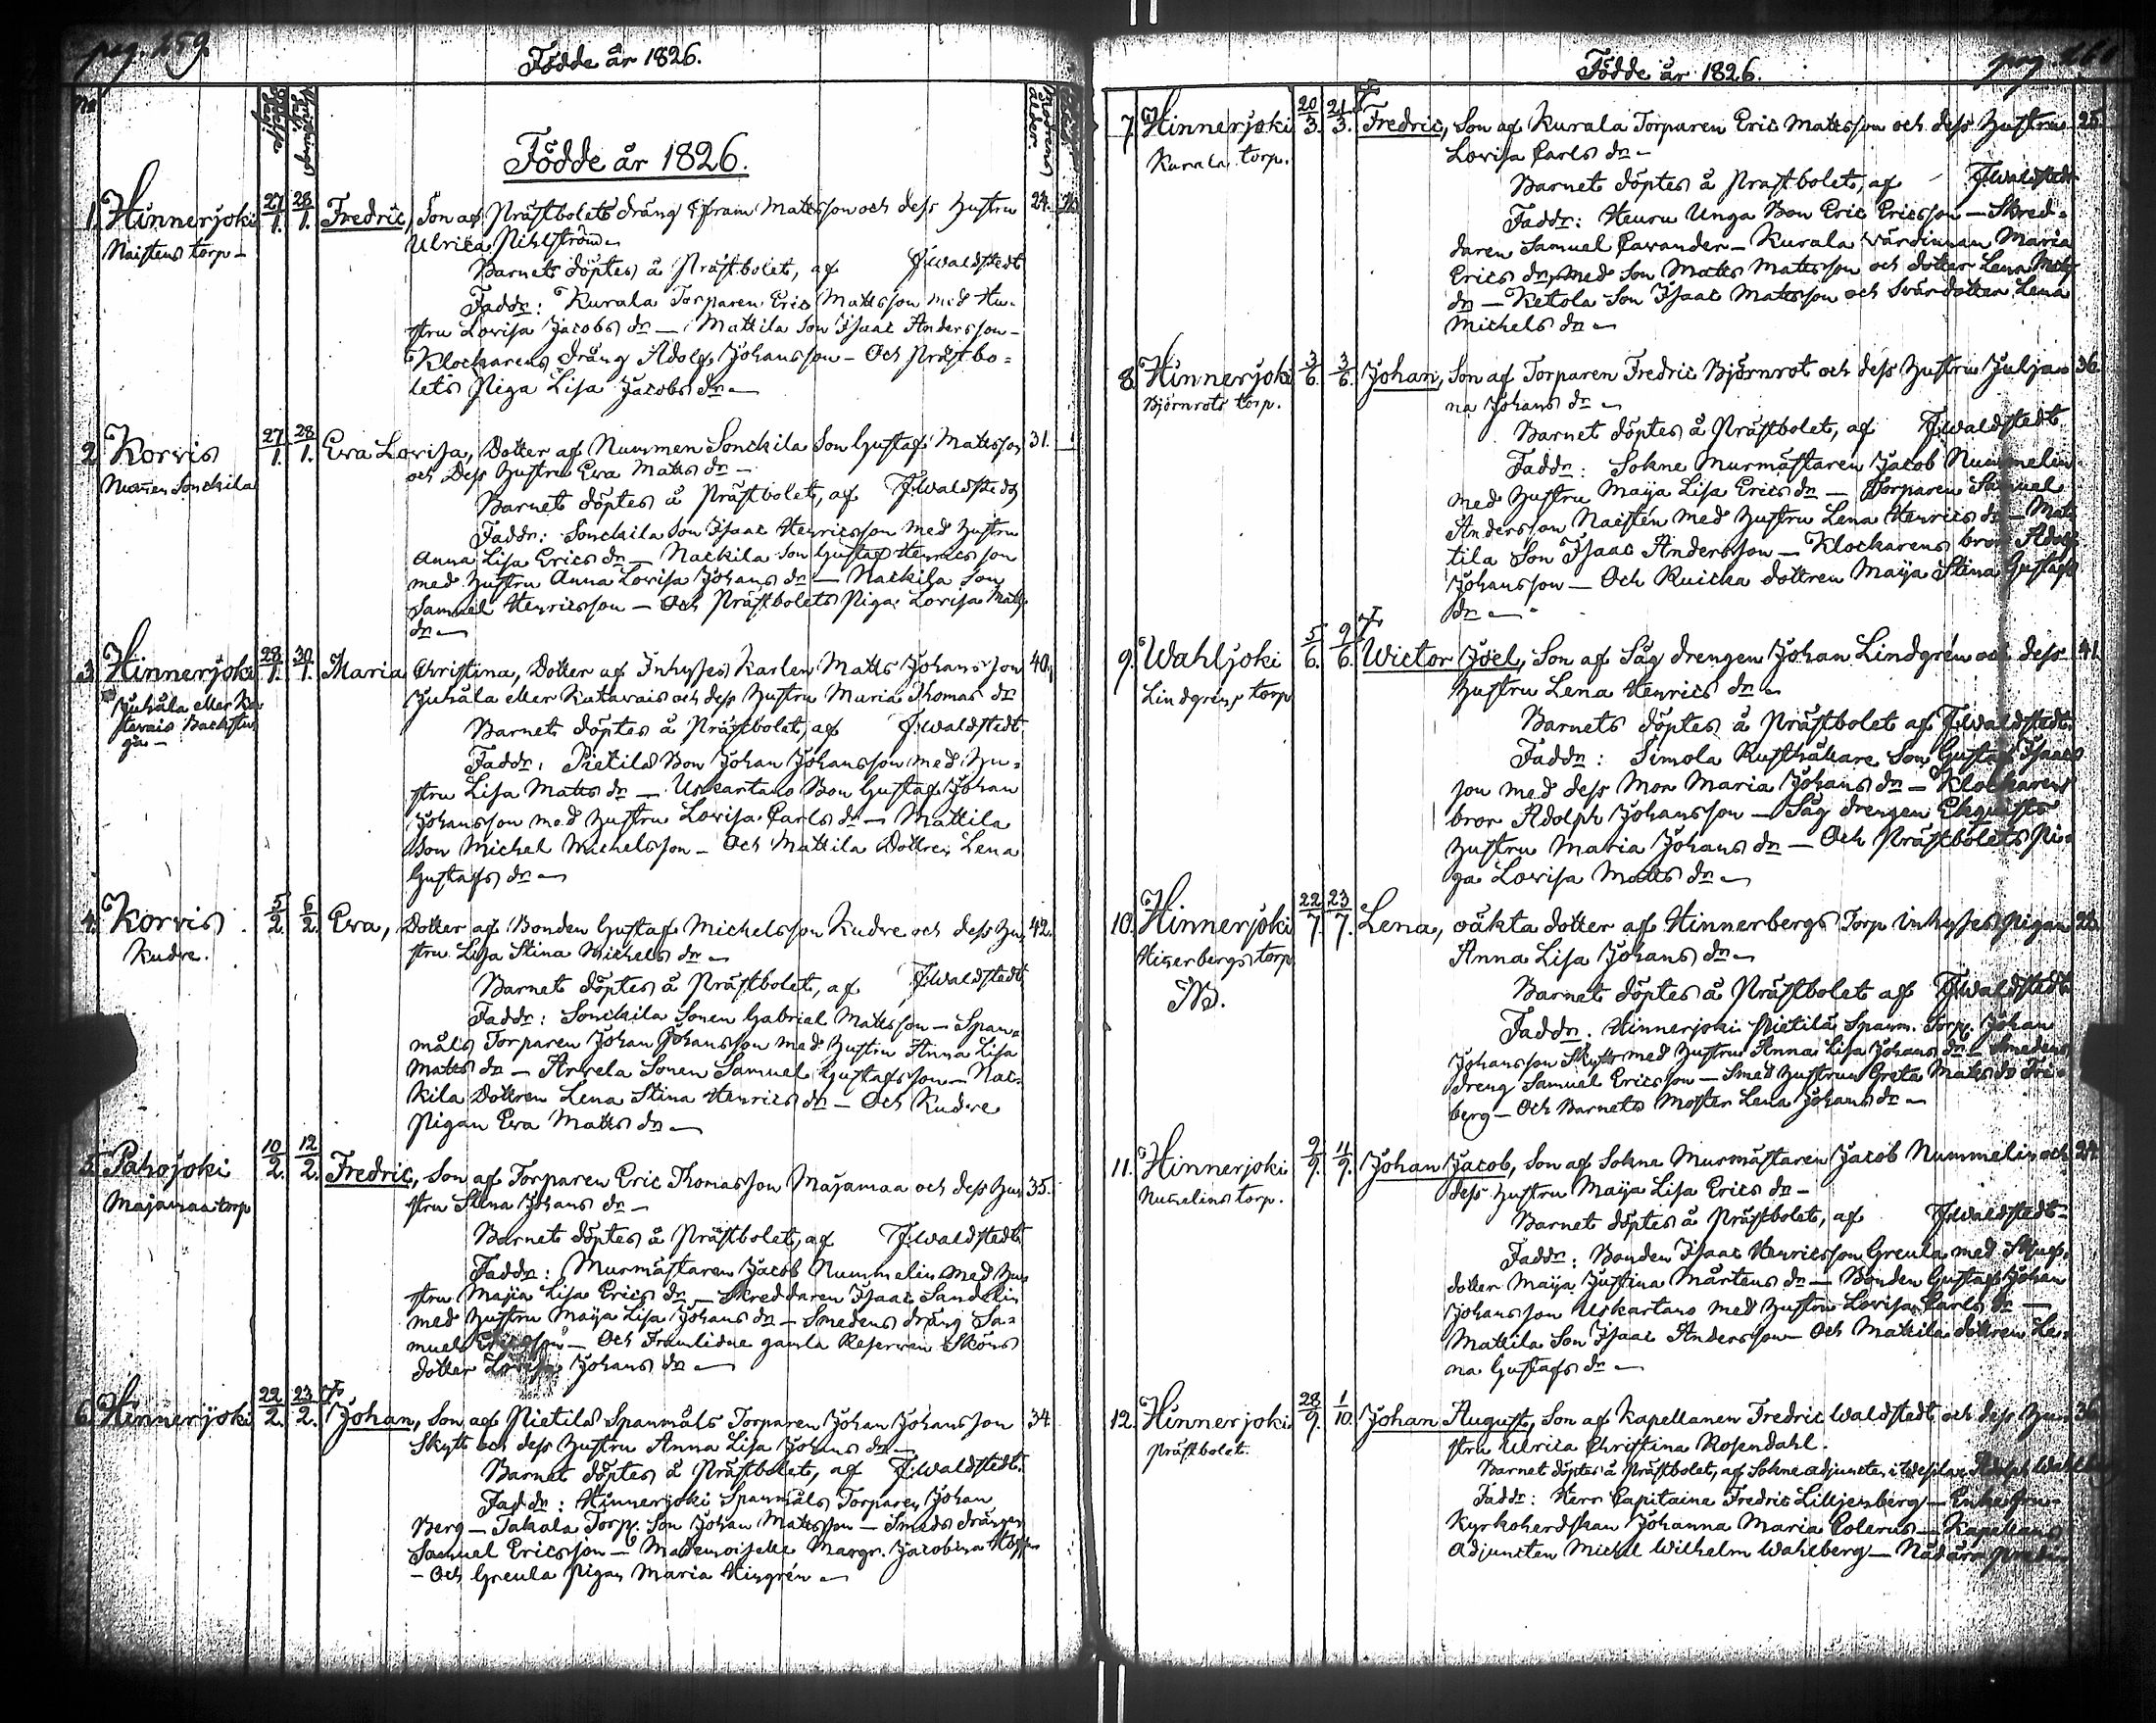 pag. 259.
Födde år 1826.
No
Moderens
ålder
Födde år 1826.
1. Hinnerjoki 27/1. 28/1. Fredric, Son af Prästbolets dräng Efraim Matsson och dess hustru 24.
Naistens torp – Ulrica Pihlström –
Barnet döptes å Prästbolet, af F. Waldstedt
Faddr: Kurala Torparen Eric Mattsson med Hu-
stru Lovisa Jacobs dr – Mattila Son Isaac Andersson –
Klockarens dräng Adolf Johansson – Och Prästbo-
lets Piga Lisa Jacobs dr –
2. Korvis 27/1. 28/1. Eva Lovisa, Dotter af Nummen Sonckila Son Gustaf Mattsson 31.
Nummen Sonckila och Dess hustru Eva Matts dr –
Barnet döptes å Prästbolet, af F. Waldstedt
Faddr: Sonckila Son Isaac Henricsson med hustru
Anna Lisa Erics dr – Nackila Son Gustaf Henricsson
med hustru Anna Lovisa Johans dr – Nackila Son
Samuel Henricsson – Och Prästbolets Piga Lovisa Matts
dr –
3. Hinnerjoki 28/1. 30/1. Maria Christina, Dotter af Inhyses Karlen Matts Johansson 40.
Juhala eller Ka- Juhala eller Katavais och dess hustru Maria Thomas dr
tavais Backstu- Barnet döptes å Prästbolet, af F. Waldstedt
ga – Faddr: Pietilä Bon Johan Johansson med Hu-
stru Lisa Matts dr – Uskartano Bon Gustaf Johan
Johansson med hustru Lovisa Carls dr – Mattila
Son Michel Michelsson – Och Mattila Dottren Lena
Gustafs dr –
4. Korvis 5/2. 6/2. Eva, Dotter af Bonden Gustaf Michelsson Kudre och dess Hu- 42.
Kudre. stru Lisa Stina Michels dr –
Barnet döptes å Prästbolet, af F. Waldstedt
Faddr: Sonckila Sonen Gabriel Mattsson – Span-
måls Torparen Johan Johansson med hustru Anna Lisa
Matts dr – Arvela Sonen Samuel Gustafsson – Nac-
kila Dottren Lena Stina Henrics dr – Och Kudre
Pigan Eva Matts dr –
5. Pahojoki 10/2. 12/2. Fredric, Son af Torparen Eric Thomasson Majamaa och dess Hu- 35.
Majamaa torp stru Stina Johans dr –
Barnet döptes å Prästbolet, af F. Waldstedt
Faddr: Murmästaren Jacob Nummelin med Hu-
stru Maja Lisa Erics dr – Skreddaren Isaac Sandelin
med hustru Maija Lisa Johans dr – Smedens dräng Sa-
muel Ericsson – Och Framlidne gamla Reserven Sköns
dotter Lovisa Johans dr –
6. Hinnerjoki 22/2. 23/2. Johan, Son af Pietilä Spanmåls Torparen Johan Johansson 34.
Skytt och dess hustru Anna Lisa Johans dr –
Barnet döptes å Prästbolet, af F. Waldstedt.
Faddr: Hinnerjoki Spanmåls Torparen Johan
Berg – Takala Torp. Son Johan Mattsson – Smeds drängen
Samuel Ericsson – Mademoiselle Margr. Jacobina
– Och Greula Pigan Maria Hingrén –
Födde år 1826.
7. Hinnerjoki 20/3. 21/3. Fredric, Son af Kurala Torparen Eric Mattsson och dess hustru 25.
Kurala torp. Lovisa Carls dr –
Barnet döptes å Prästbolet, af F. Waldstedt
Faddr: Heuru Unga Bon Eric Ericsson – Skred-
daren Samuel Cavander – Kurala Värdinnan Maria
Erics dr, med Son Matts Mattsson och dotter Lena Matts
dr – Ketola Son Isaac Mattsson och Svärdotter Lena
Michels dr –
8. Hinnerjoki 3/6. 3/6. Johan, Son af Torparen Fredric Björnrot och dess hustru Julja- 36.
Björnrots torp. na Johans dr –
Barnet döptes å Prästbolet, af F. Waldstedt
Faddr: Sokne Murmästaren Jacob Nummelin
med hustru Maija Lisa Erics dr – Torparen Samuel
Andersson Naistén med hustru Lena Henrics dr – Mat-
tila Son Isaac Andersson – Klockarens bror Adolf
Johansson – Och Kuicka dottren Maija Stina Gustafs
dr –
9. Wahljoki 5/6. 9/6. Wictor Joel, Son af Såg drengen Johan Lindgrén och dess 41.
Lindgréns torp hustru Lena Henrics dr –
Barnets döptes å Prästbolet af F. Waldstedt
Faddr: Simola Rusthållare Son Gustaf Isaacs
son med dess Mor Maria Johans dr – Klockarens
bror Adolph Johansson – Såg drengen Ekquists
hustru Maria Johans dr – Och Prästbolets Pi-
ga Lovisa Matts dr –
10. Hinnerjoki 22/7. 23/7. Lena, oäkta dotter af Hinnerbergs Torp inhyses Pigan 28.
Hinerbergs torp Anna Lisa Johans dr –
NB. Barnet döptes å Prästbolet af F. Waldstedt
Faddr. Hinnerjoki Pietilä Spanm. Torp. Johan
Johansson Skytt med hustru Anna Lisa Johans dr – Smedens
dreng Samuel Ericsson – Smed hustrun Greta Matts dr Fri-
berg – Och Barnets Moster Lena Johans dr –
11. Hinnerjoki 9/9. 11/9. Johan Jacob, Son af Sokne Murmästaren Jacob Nummelin och 24.
Numelins torp. dess hustru Maija Lisa Erics dr –
Barnet döptes å Prästbolet, af F. Waldstedt –
Faddr: Bonden Isaac Henricsson Greula med Stjuf-
dotter Maija Justina Mårtens dr – Bonden Gustaf Johan
Johansson Uskartano med hustru Lovisa Carls dr –
Mattila Son Isaac Andersson – Och Mattila dottren Le-
na Gustafs dr –
12. Hinnerjoki 28/9. 1/10. Johan August, Son af Kapellanen Fredric Waldstedt och dess Hu- 36.
Prästbolet. stru Ulrica Christina Rosendahl.
Barnet döptes å Prästbolet, af Sokne adjuncten i
Faddr: Herr Capitaine Fredric Lilljenberg – Enke Fru-
Kyrkoherdskan Johanna Maria Polerus – Kapellans
Adjuncten Michel Wilhelm Wahlberg –